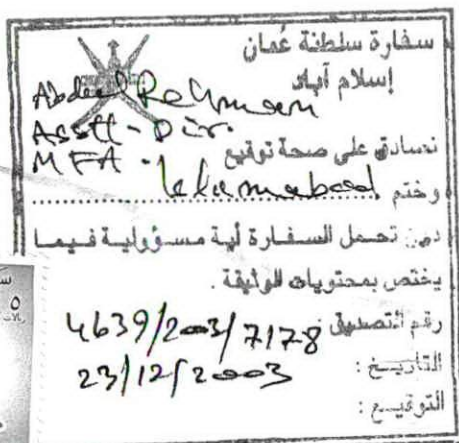 سفارة سلطنة عُمان
إسلام آباد
Abdul Rehman
Asstt-Dir.
نصادق على صحة توقيع
MFA -
وختم Islamabad
دون تحمل السفارة أية مسؤولية فيما
يختص بمحتويات الوثيقة .
رقم التصديق : 4639/2003/7178
التاريخ : 23/12/2003
التوقيع :
٥